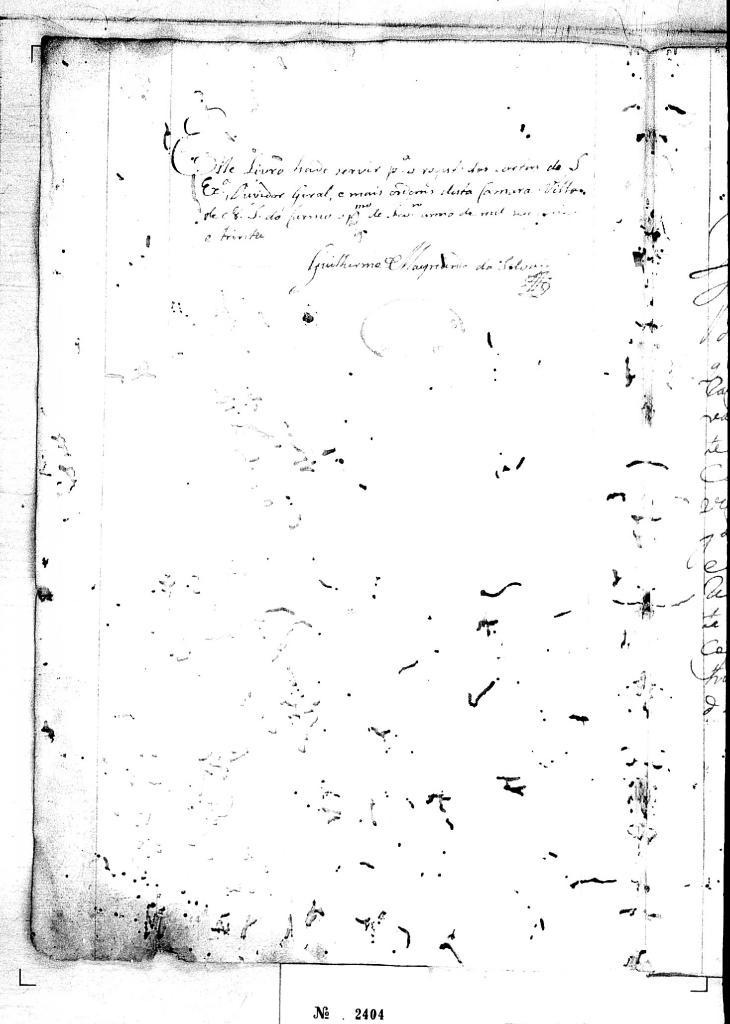 Este Livro hade servir p.ª o regist. das cartas de S
Ex.ª, Ouvidor Geral, e mais officiaes desta Camara. Villa
de N. S. do Carmo o pm.º de anno de mil
e trinta
Guilherme Maynardo da Silva
№ 2404